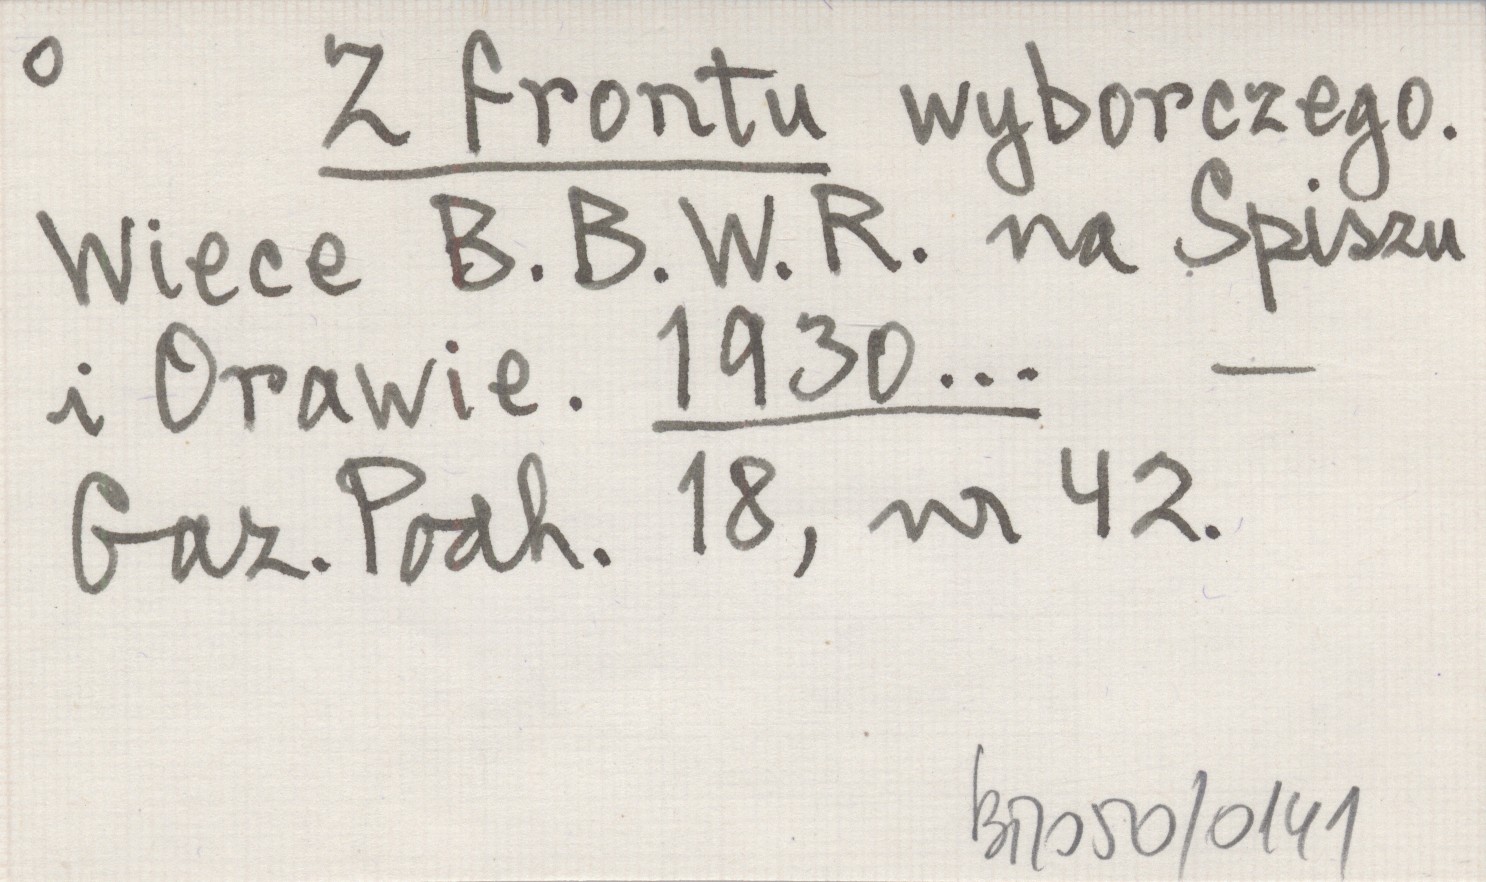 o Z frontu wyborczego.
Wiece B.B.W.R. na Spiszu
i Orawie. 1930... —
Gaz. Podh. 18, nr 42.